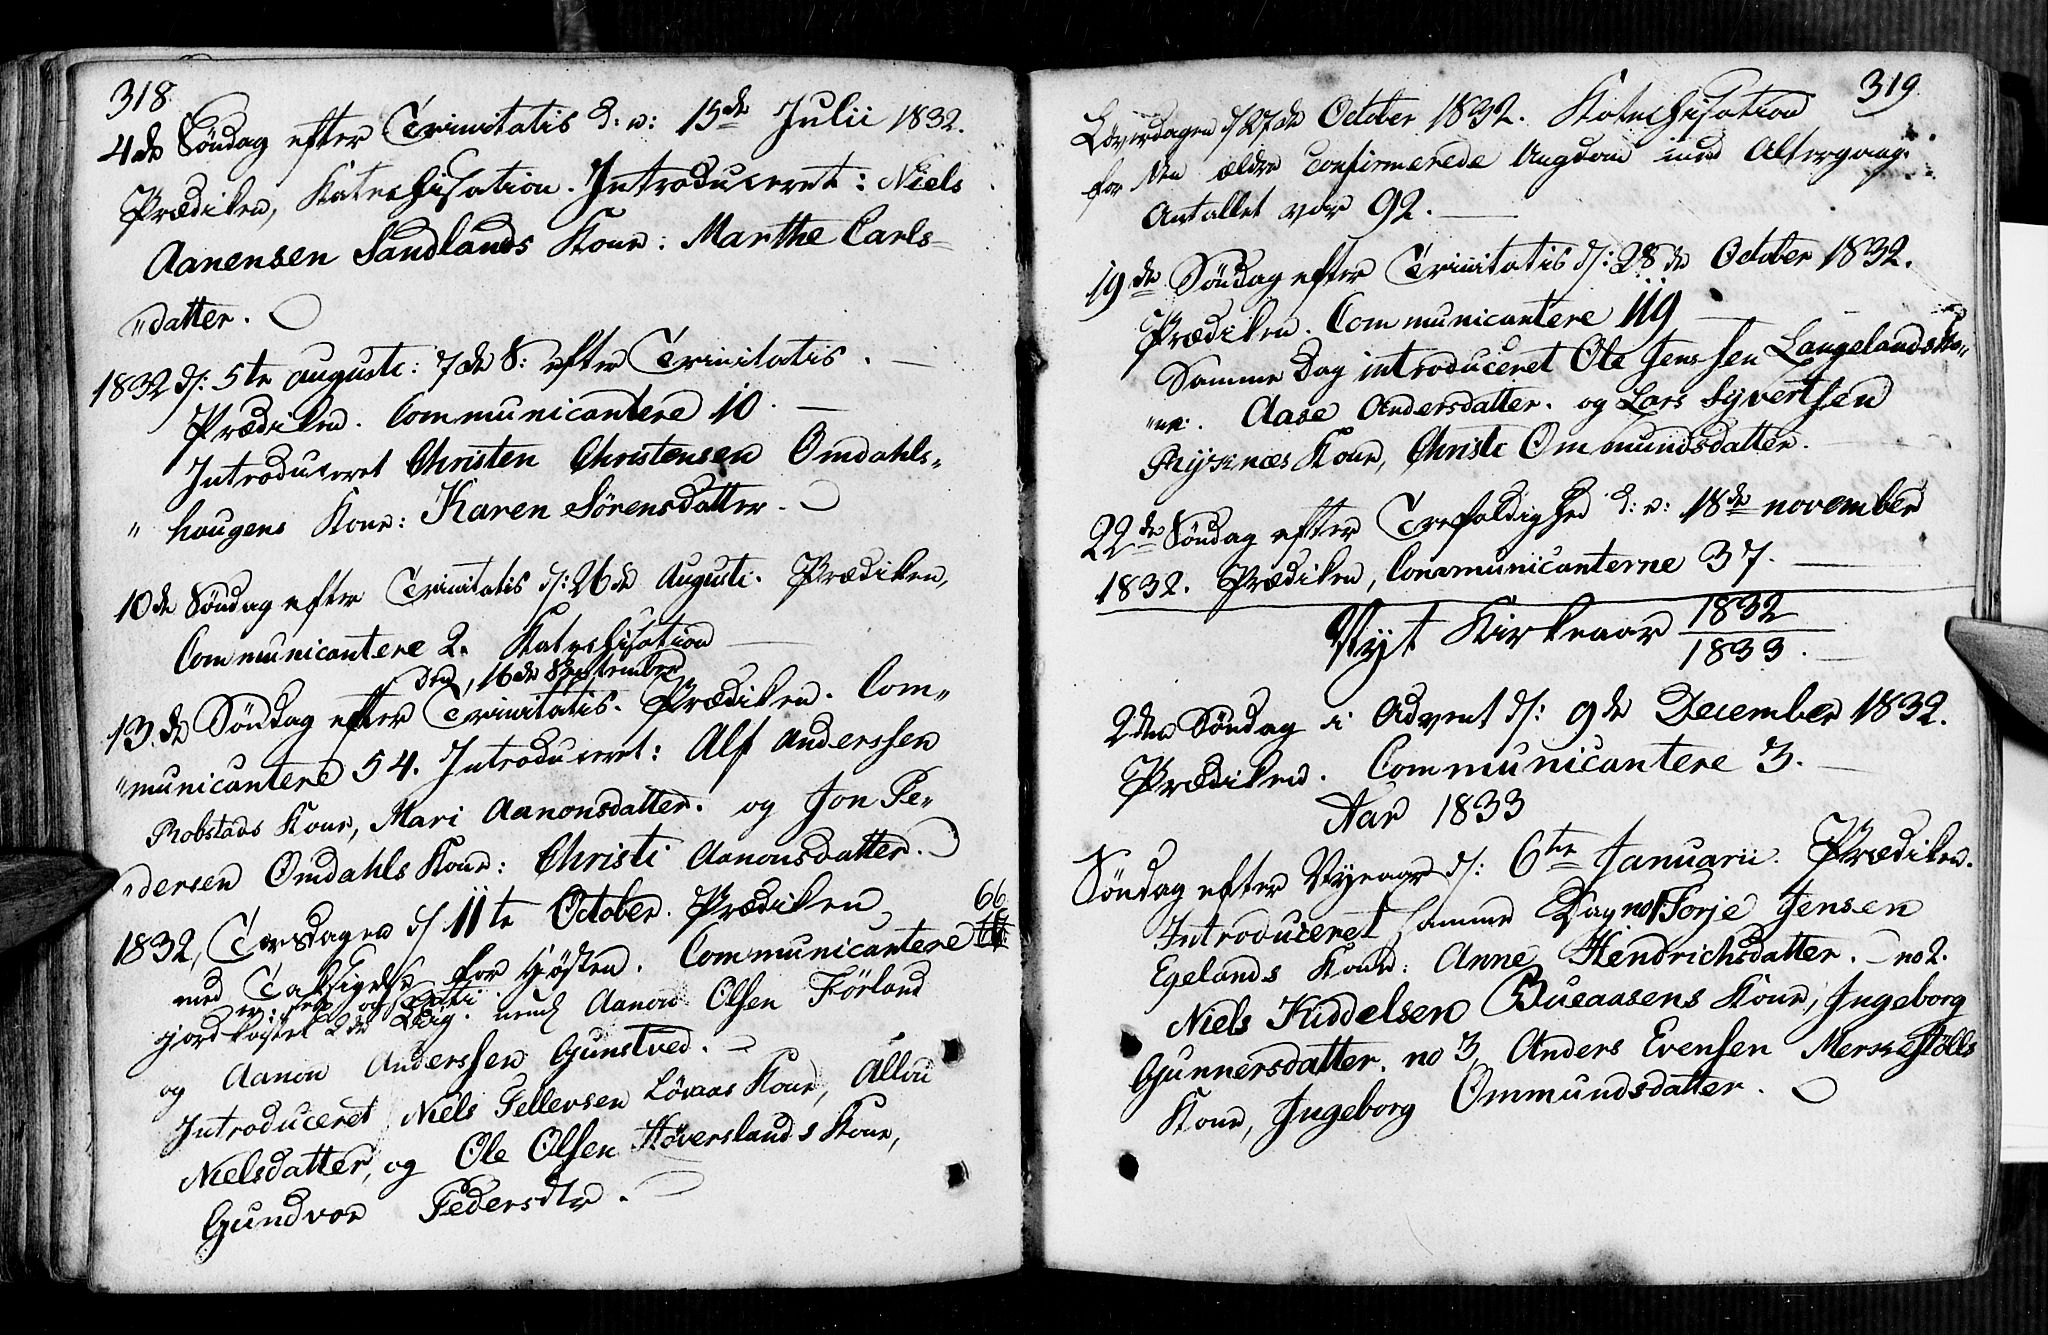 318
4de Søndag efter Trinitatis d: v: 15de Julii 1832.
Prædiken, Katechisation. Introduceret: Niels
Aanensen Sandlands Kone: Marthe Carls-
"datter.
1832 d: 5te augusti: 7de S: efter Trinitatis.
Prædiken. Communicantere 10.
Introduceret Christen Christensen Omdahls"
" haugens Kone: Karen Sørensdatter.
10de Søndag efter Trinitatis d: 26de Augusti. Prædiken,
Communicantere 2. Katechisation
den, 16de September
13.de Søndag efter Trinitatis. Prædiken. Com"
"municantere 54. Introduceret: Alf Anderssen
Robstads Kone, Mari Aanonsdatter. og Jon Pe"
"dersen Omdahls Kone: Christi Aanonsdatter.
1832, Torsdagen d 11te October. Prædiken 66
med Taksigelse for Høsten. Communicantere
og Aanon Olsen Førland
og Aanon Anderssen Gunstved.
Introduceret Niels Tellevsen Løvaas Kone, Allou
Nielsdatter, og Ole Olsen Høverslands Kone,
Gundvor Pedersdtr.
319
Løverdagen d 27de October 1832. Katechisation
for den ældre Confirmerede Ungdom med Altergang.
Antallet var 92.
19de Søndag efter Trinitatis d: 28de October 1832.
Prædiken. Communicantere 119
Samme Dag introduceret Ole Jenssen Langelands Ko"
"ne: Aase Andersdatter. og Lars Syvertsen
Rysnæs Kone, Christi Ommundsdatter.
22de Søndag efter Trefoldighed d: v: 18de november
1832. Prædiken, Communicanterne 37.
Nyt Kirkeaar 1832
1833.
2den Søndag i Advent d: 9de December 1832.
Prædiken. Communicantere 3.
Aar 1833
Søndag efter Nyeaar d: 6te Januarii. Prædiken.
Introduceret samme Dag no 1 Torje Jensen
Egelands Kone: Anne Hendrichsdatter. - no 2.
Niels Kiddelsen Bueaasens Kone, Ingeborg
Gunnersdatter. no 3, Anders Evensen Merkestølls
Kone, Ingeborg Ommundsdatter.